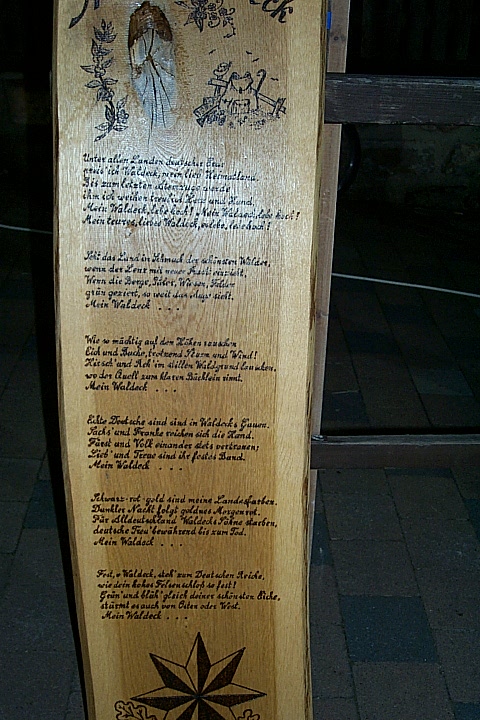 eck
Unter allen Landen deutscher Erde
preis' ich Waldeck, mein lieb Heimatland.
Bis zum letzten Atemzuge werde
ihm ich weihen treulich Herz und Hand.
Mein Waldeck, lebe hoch! Mein Waldeck, lebe hoch!
Mein teures, liebes Waldeck, es lebe, lebe hoch!
Seht das Land im Schmuck der schönsten Wälder,
wenn der Lenz mit neuer Pracht einzieht,
Wenn die Berge, Täler, Wiesen, Felder
grün geziert, so weit das Auge sieht.
Mein Waldeck . . .
Wie so mächtig auf den Höhen rauschen
Eich und Buche, trotzend Sturm und Wind!
Hirsch' und Reh' im stillen Waldgrund lauschen,
wo der Quell zum klaren Bächlein rinnt.
Mein Waldeck . . .
Echte Deutsche sind sind in Waldecks Gauen.
Sachs' und Franke reichen sich die Hand.
Fürst und Volk einander stets vertrauen;
Lieb' und Treue sind ihr festes Band.
Mein Waldeck . . .
Schwarz-rot-gold sind meine Landesfarben.
Dunkler Nacht folgt goldnes Morgenrot.
Für Alldeutschland Waldecks Söhne starben,
deutsche Treu' bewährend bis zum Tod.
Mein Waldeck . . .
Fest, o Waldeck, steh' zum Deutschen Reiche,
wie dein hohes Felsenschloß so fest!
Grün' und blüh' gleich deiner schönsten Eiche,
stürmt es auch von Osten oder West.
Mein Waldeck . . .